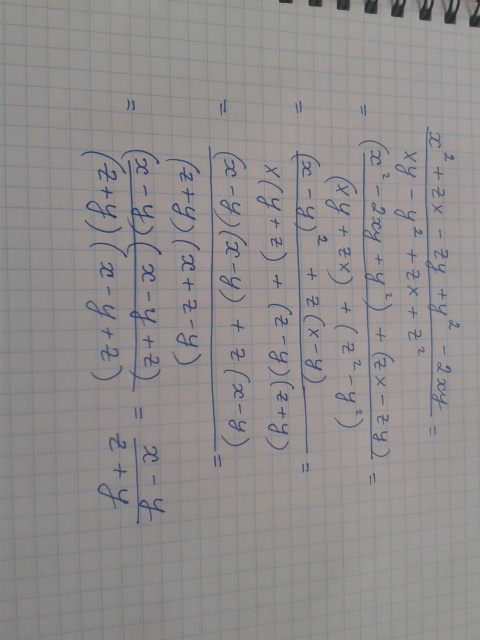 x² + zx - zy + y² - 2xy
xy - y² + zx + z² =
= (x² - 2xy + y²) + (zx - zy)
(xy + zx) + (z² - y²) =
= (x - y)² + z(x - y)
x(y + z) + (z - y)(z + y) =
= (x - y)(x - y) + z(x - y)
(z + y)(x + z - y) =
= (x - y)(x - y + z) = x - y
(z + y)(x - y + z) z + y